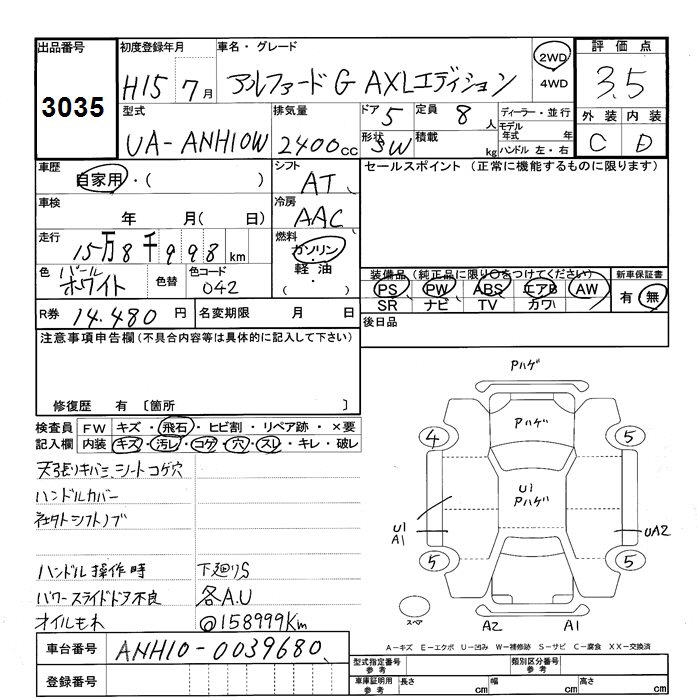 出品番号
3035
初度登録年月
H15 7月
車名・グレード
アルファード G AXLエディション
2WD
4WD
評価点
3.5
外装 内装
C D
型式
UA-ANH10W
排気量
2400cc
ドア 5
形状 SW
定員 8人
積載 kg
ディーラー・並行
モデル年式 年
ハンドル 左・右
車歴
自家用・( )
車検
年 月( 日)
走行
15万8千998km
色 パールホワイト
色替
色コード 042
シフト
AT
冷房
AAC
燃料
ガソリン
軽油・
( )
セールスポイント (正常に機能するものに限ります)
装備品(純正品に限り○をつけてください)
PS PW ABS エアB AW
SR ナビ TV カワ
新車保証書
有 無
後日品
R券 14,480円
名変期限 月 日
注意事項申告欄(不具合内容等は具体的に記入して下さい)
修復歴 有 〔箇所 〕
検査員記入欄
FW キズ・飛石・ヒビ割・リペア跡・×要
内装 キズ・汚レ・コゲ・穴・スレ・キレ・破レ
天張りキバミ、シートコゲ穴
ハンドルカバー
社外シフトノブ
ハンドル操作時
パワースライドドア不良
オイルもれ
下廻りS
各A.U
@158999Km
Pハゲ
Pハゲ
U1
Pハゲ
4
5
5
5
U1
A1
UA2
スペア
A2 A1
A-キズ E-エクボ U-凹み W-補修跡 S-サビ C-腐食 XX-交換済
車台番号
ANH10-0039680
登録番号
型式指定番号 参考
類別区分番号 参考
車庫証明用 参考
長さ cm
幅 cm
高さ cm